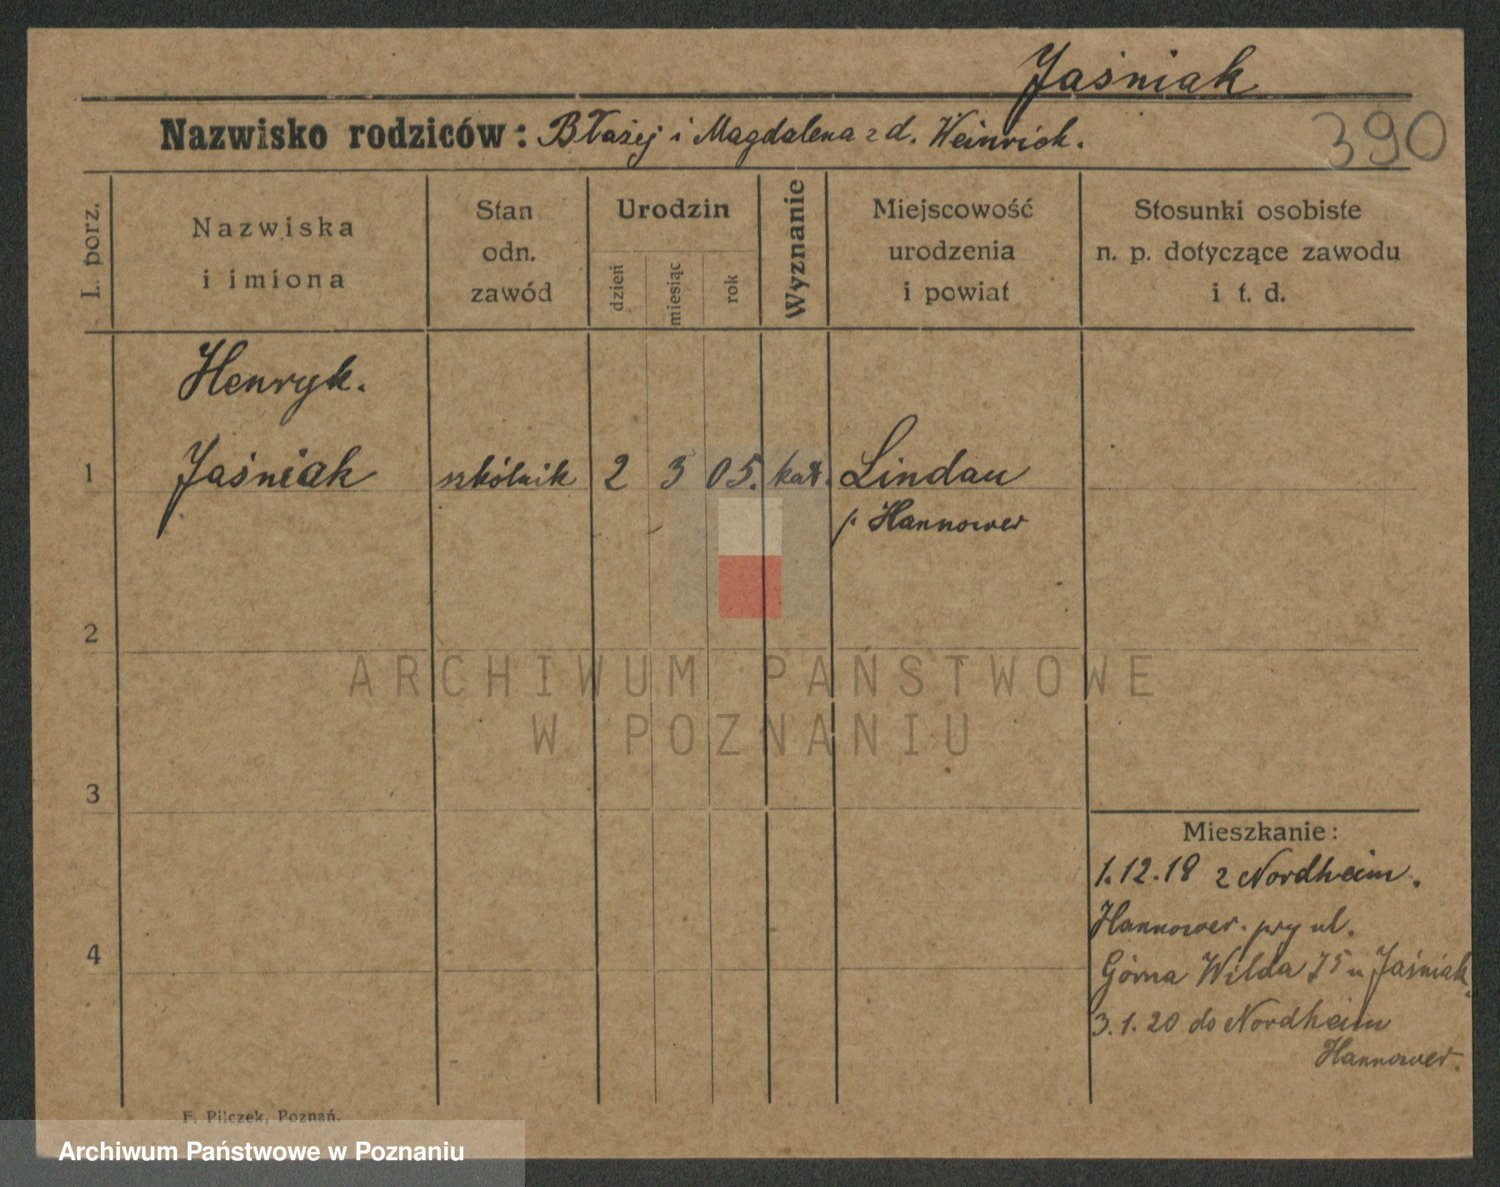 Jaśniak
390
Nazwisko rodziców: Błażej i Magdalena z d. Weinrich.
L. porz.
Nazwiska
i imiona
Stan
odn.
zawód
Urodzin
dzień
miesiąc
rok
Wyznanie
Miejscowość
urodzenia
i powiat
Stosunki osobiste
n. p. dotyczące zawodu
i t. d.
Henryk.
1 Jaśniak szkólnik 2 3 05. kat. Lindau
p. Hannower
2
3
4
Mieszkanie:
1.12.18 z Nordheim.
Hannower. przy ul.
Górna Wilda 75 u Jaśniak.
3.1.20 do Nordheim
Hannower.
F. Pilczek, Poznań.
ARCHIWUM PAŃSTWOWE
W POZNANIU
Archiwum Państwowe w Poznaniu